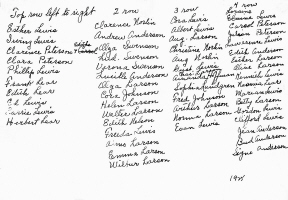 Top row left to right
Esther Lewis
Irving Lewis
Clarence Peterson
Clara Peterson
Phillip Lewis
Frank Lear
Edith Lear
C.E. Lewis
Carrie Lewis
Herbert Lear
2 row
Clarence Norlin
Andrew Anderson
Olga Swenson
Swenson
Swenson
Lucille Anderson
Olga Larson
Cora Johnson
Helen Larson
Walter Larson
Edith Nelson
Freeda Lewis
Amos Larson
Emma Larson
Wilbur Larson
3 row
Cora Lewis
Albert Lewis
Aug. Larson
Christine Norlin
Aug Norlin
C.E. Lewis
Sophie Lundgren
Fred Johnson
Arthur Larson
Norma Larson
Evan Lewis
4 row
Elaine Lewis
Carrol Peterson
Peterson
Lawrence Lewis
Edith Anderson
Esther Larson
Kenneth Lewis
Marian Lewis
Betty Larson
Gordon Lewis
Clifford Lewis
Jean Anderson
Bud Anderson
Signe Anderson